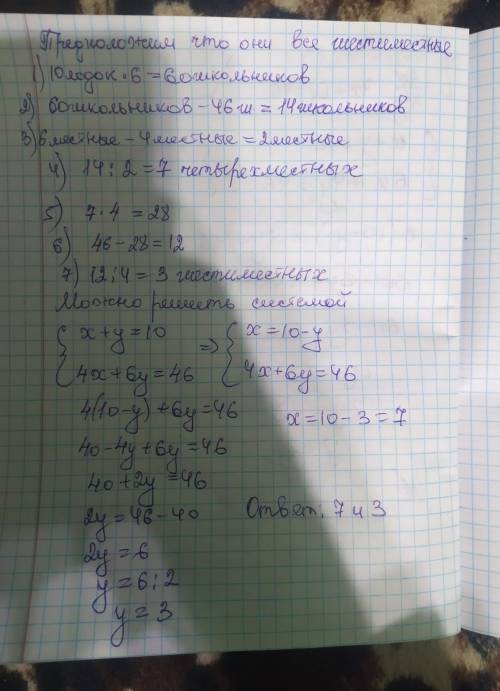 Предположим что они все шестиместные
1) 10 лодок · 6 = 60 школьников
2) 60 школьников – 46 ш = 14 школьников
3) 6 местные – 4 местные = 2 местные
4) 14 : 2 = 7 четырехместных
5) 7 · 4 = 28
6) 46 – 28 = 12
7) 12 : 4 = 3 шестиместных
Можно решить системой
{ x + y = 10 => { x = 10 – y
{ 4x + 6y = 46 { 4x + 6y = 46
4(10 – y) + 6y = 46 x = 10 – 3 = 7
40 – 4y + 6y = 46
40 + 2y = 46
2y = 46 – 40 Ответ: 7 и 3
2y = 6
y = 6 : 2
y = 3